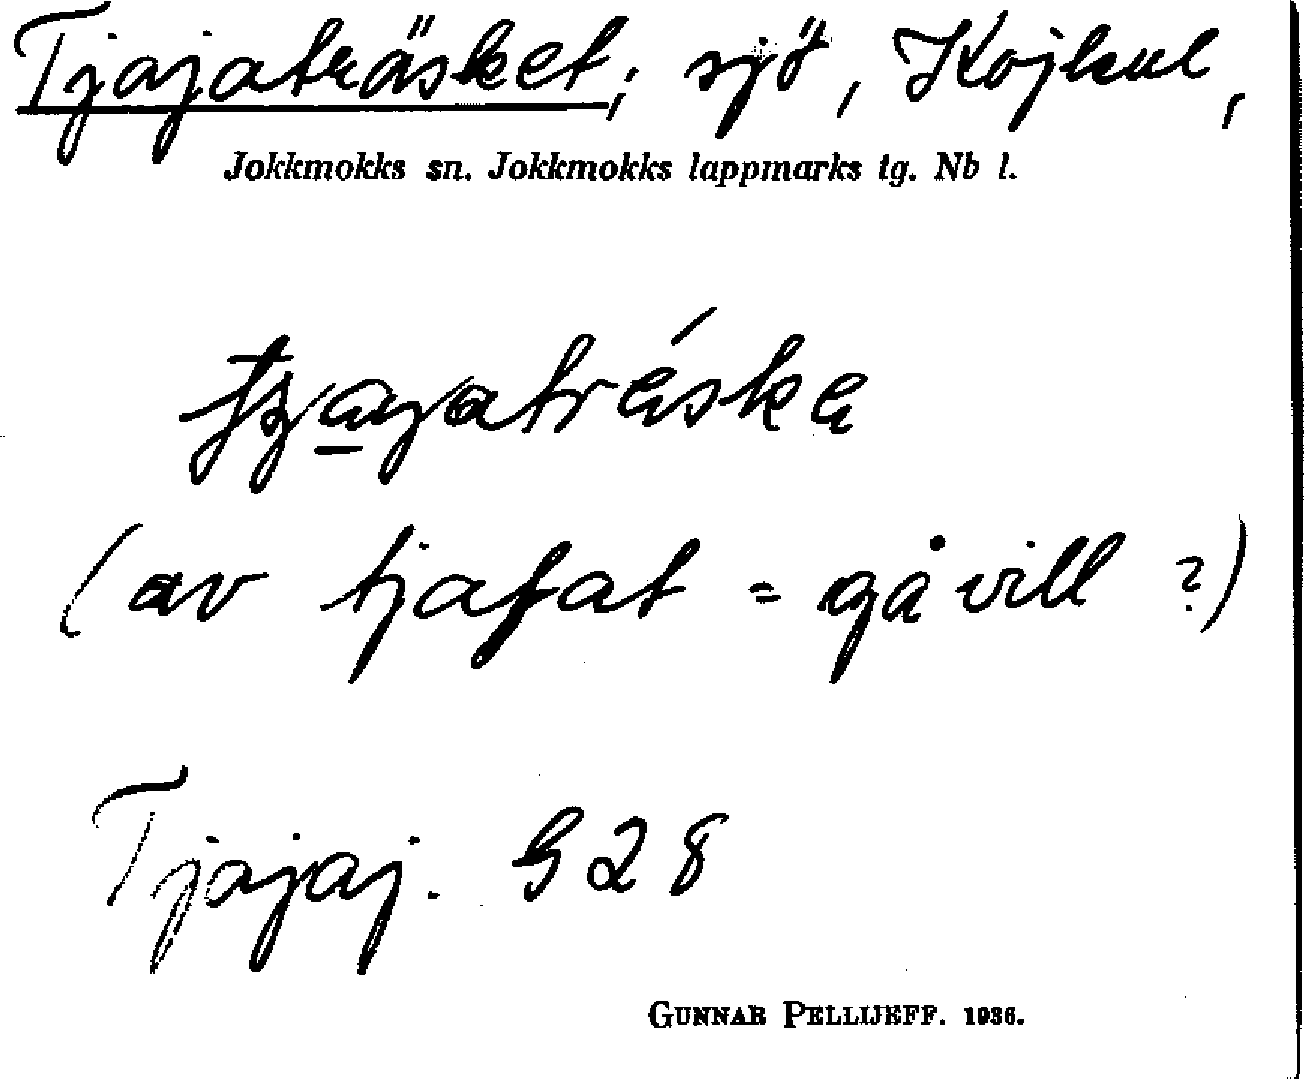 Tjajaträsket; sjö, Kojkul,
Jokkmokks sn. Jokkmokks lappmarks tg. Nb l.
(av tjafat = gå vill ?)
Tjajaj. G28
GUNNAR PELLIJEFF. 1936.